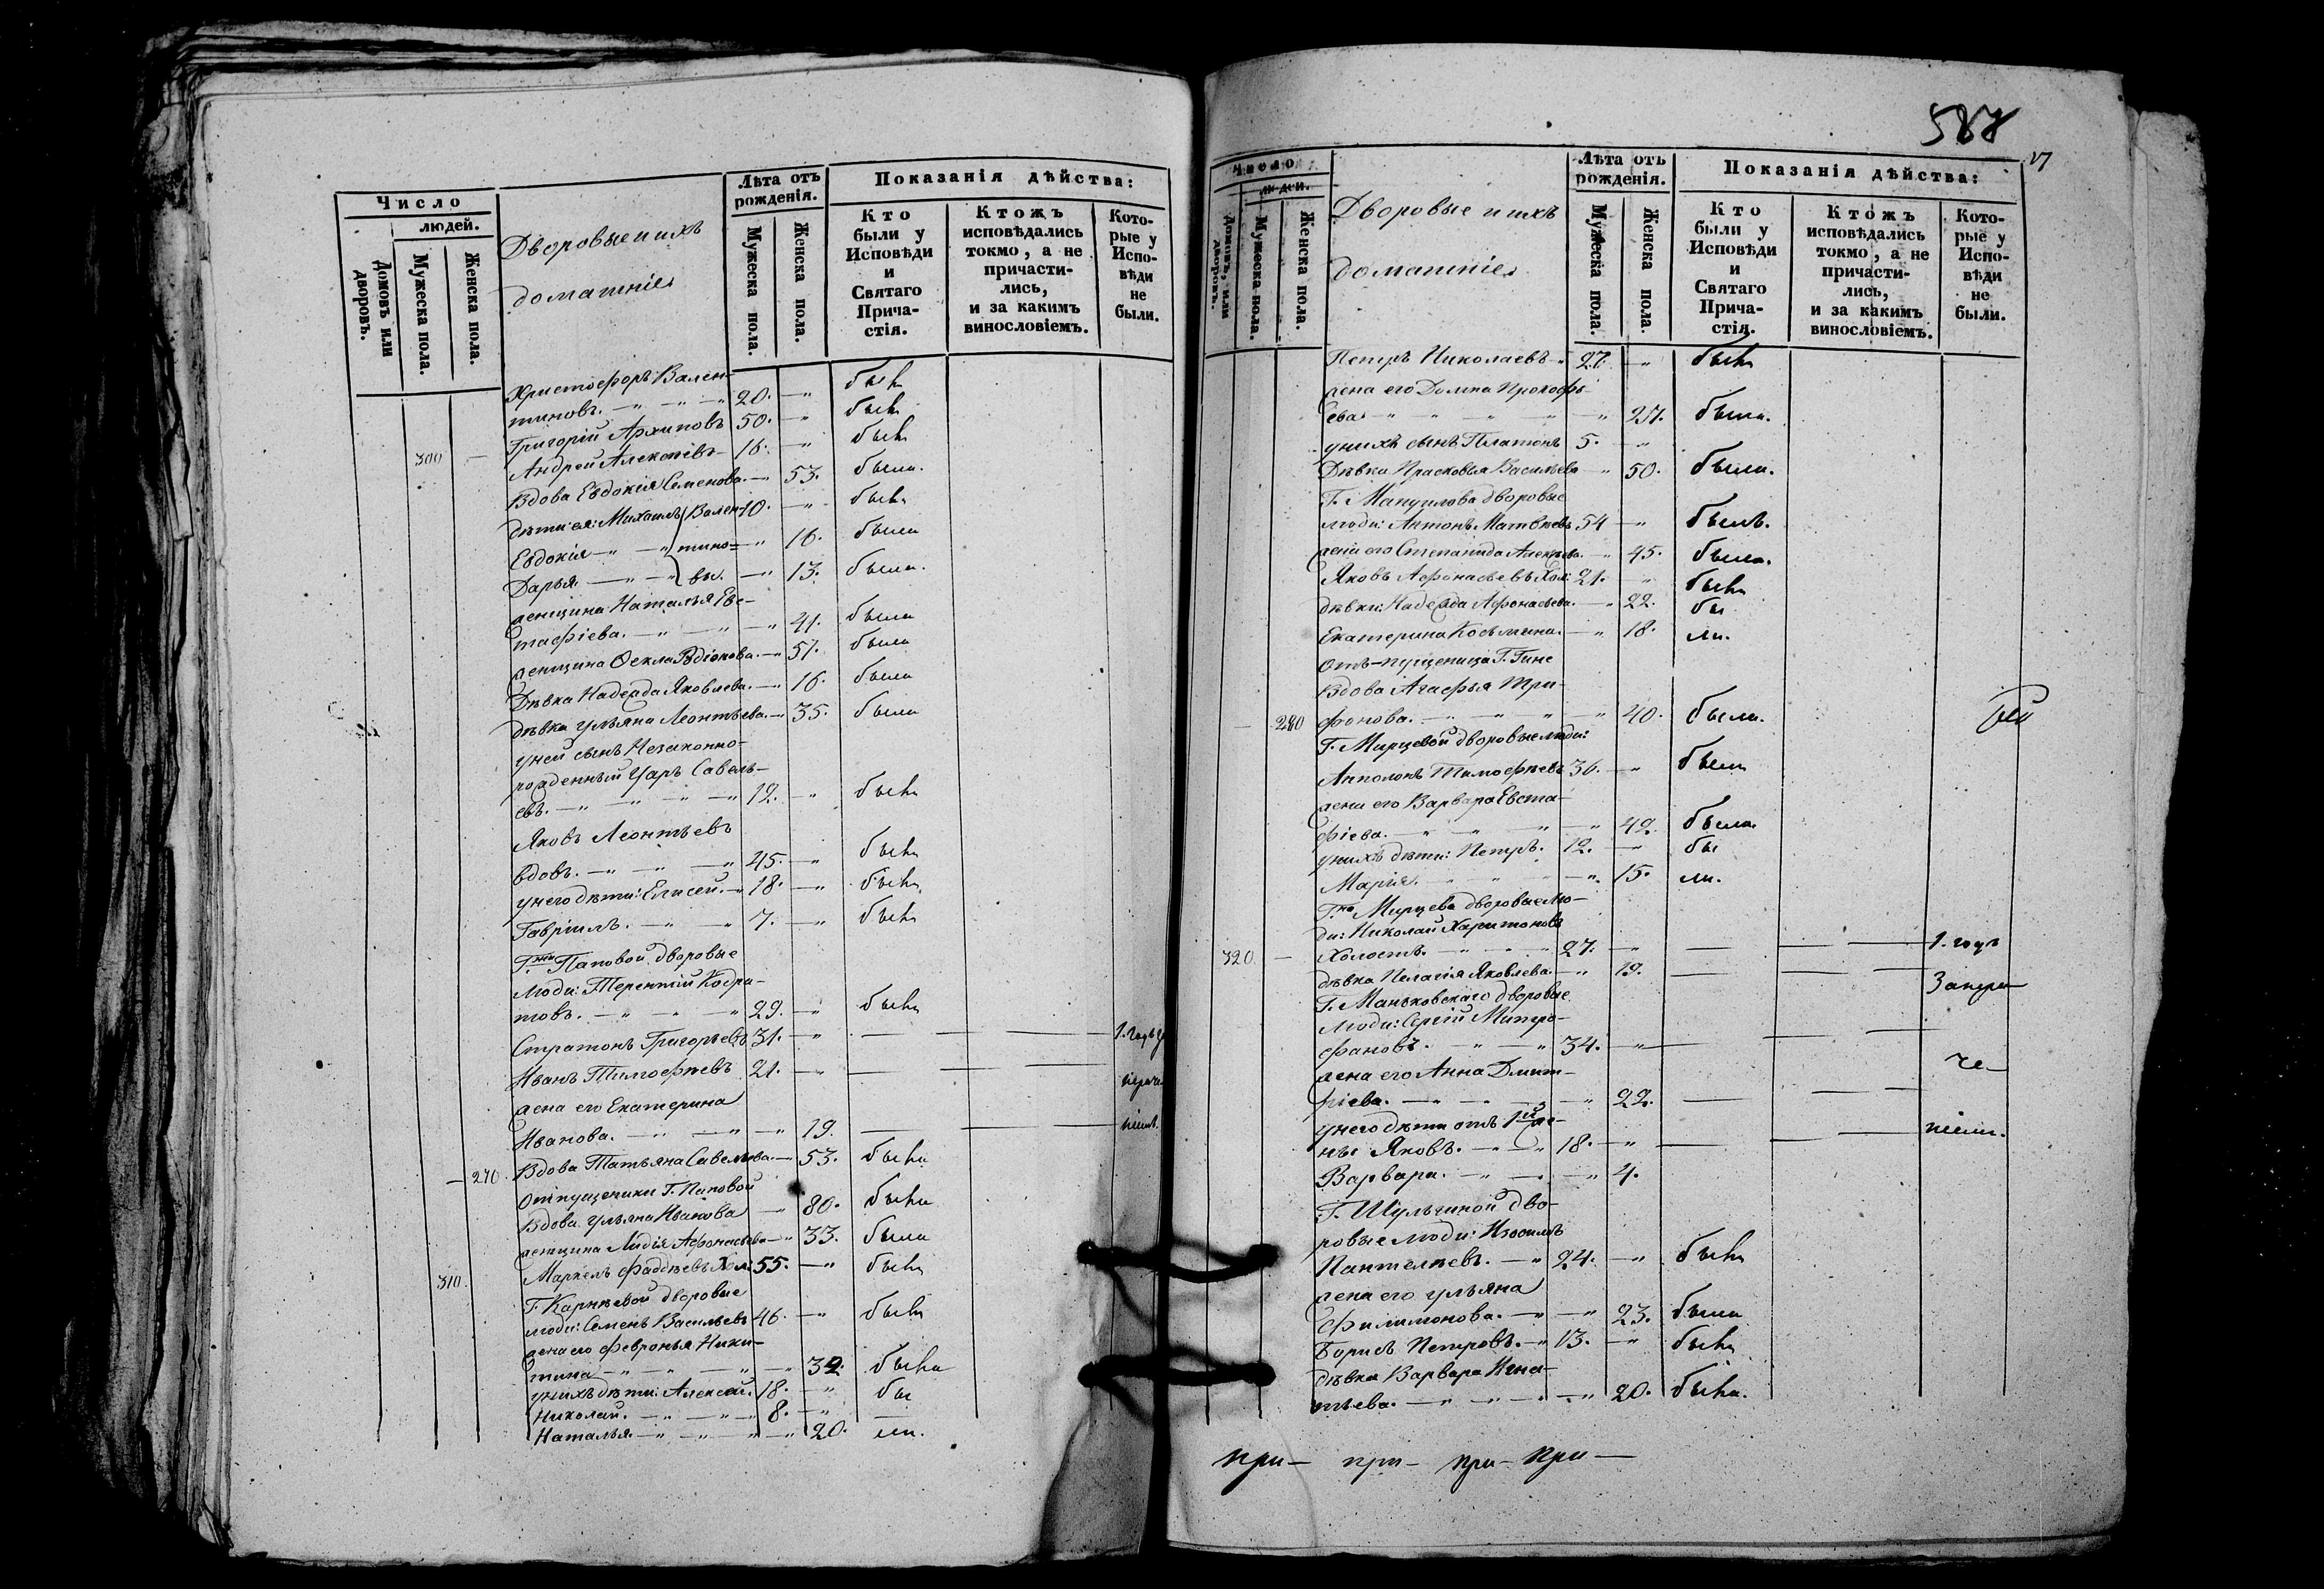 Число
людей.
Домовъ или дворовъ.
Мужеска пола.
Женска пола.
Дворовые и ихъ
домашніе
Лѣта отъ
рожденія.
Мужеска пола.
Женска пола.
Показанія дѣйства:
Кто
были у
Исповѣди
и
Святаго
Прича-
стія.
Ктожъ
исповѣдались
токмо, а не
причасти-
лись,
и за какимъ
винословіемъ.
Кото-
рые у
Испо-
вѣди
не
были.
Христофоръ Вален-
тиновъ. 20. былъ
Григорій Архиповъ 50. былъ
300 Андрей Алексѣевъ 16. былъ
Вдова Евдокія Семенова. 53. была.
дѣти ея: Михаилъ Вален- 10. былъ
Евдокія тино= 16. была
Дарья. вы. 13. была.
женщина Наталья Евс-
тафіева. 41. была
женщина Ѳекла Родіонова. 57. была
Дѣвка Надежда Яковлева. 16. была
дѣвка Ульяна Леонтьева. 35. была
у ней сынъ Незаконно-
рожденный Уаръ Савель-
евъ. 12. былъ
Яковъ Леонтьевъ
вдовъ. 45. былъ
у него дѣти: Елисей. 18. былъ
Гавріилъ. 7. былъ
Г.жи Паповой дворовые
люди: Терентій Кодра-
товъ. 29. былъ
Стратонъ Григорьевъ 31. 1. годъ
Иванъ Тимофѣевъ 21.
жена его Екатерина
Иванова. 19.
270. Вдова Татьяна Савельева. 53. была
Отпущеники Г. Паповой
Вдова Ульяна Иванова 80. была
женщина Лидія Афонасьева 33. была
310. Маркелъ Фаддѣевъ Хол: 55. былъ
Г. Карнѣевой дворовые
люди: Семенъ Васильевъ 46. былъ
жена его Февронья Ники-
тина 32. была
у нихъ дѣти: Алексѣй. 18. бы
Николай. 8.
Наталья. 20. ли.
588
Число
людей.
Домовъ, или дворовъ.
Мужеска пола.
Женска пола.
Дворовые и ихъ
домашніе
Лѣта отъ
рожденія.
Мужеска пола.
Женска пола.
Показанія дѣйства:
Кто
были у
Исповѣди
и
Святаго
Прича-
стія.
Ктожъ
исповѣдались
токмо, а не
причасти-
лись,
и за какимъ
винословіемъ.
Кото-
рые у
Испо-
вѣди
не
были.
Петръ Николаевъ 27. былъ
жена его Домна Прокофь-
ева 27. была.
у нихъ сынъ Платонъ 5.
Дѣвка Прасковья Васильева 50. была.
Г. Мануилова дворовые
люди: Антонъ Матвѣевъ 54 былъ.
жена его Степанида Алексѣева. 45. была.
Яковъ Афонасьевъ Хол: 21. былъ
дѣвки: Надежда Афонасьева. 22. бы
Екатерина Косьмина. 18. ли.
Отъ-пущеница Г. Гине
Вдова Агафья Три-
280 фонова. 40. была.
Г. Мирцевой дворовые люди:
Апполонъ Тимофѣевъ 36. былъ
жена его Варвара Евста-
фіева. 42. была
у нихъ дѣти: Петръ. 12. бы
Марія. 15. ли.
Г.на Мирцева дворовые лю-
ди: Николай Харитоновъ
320. Холостъ. 27. 1. годъ
дѣвка Пелагія Яковлева. 19.
Г. Маньковскаго дворовые
люди: Сергій Митро-
фановъ. 34.
жена его Анна Дмит-
ріева. 22.
у него дѣти отъ 1й же-
ны Яковъ. 18.
Варвара. 4.
Г. Шульгиной дво-
ровые люди: Изосимъ
Пантелѣевъ. 24. былъ
жена его Ульяна
Филимонова. 23. была
Борисъ Петровъ. 13. былъ
дѣвка Варвара Игна-
тьева. 20. была.
при- при- при- при-